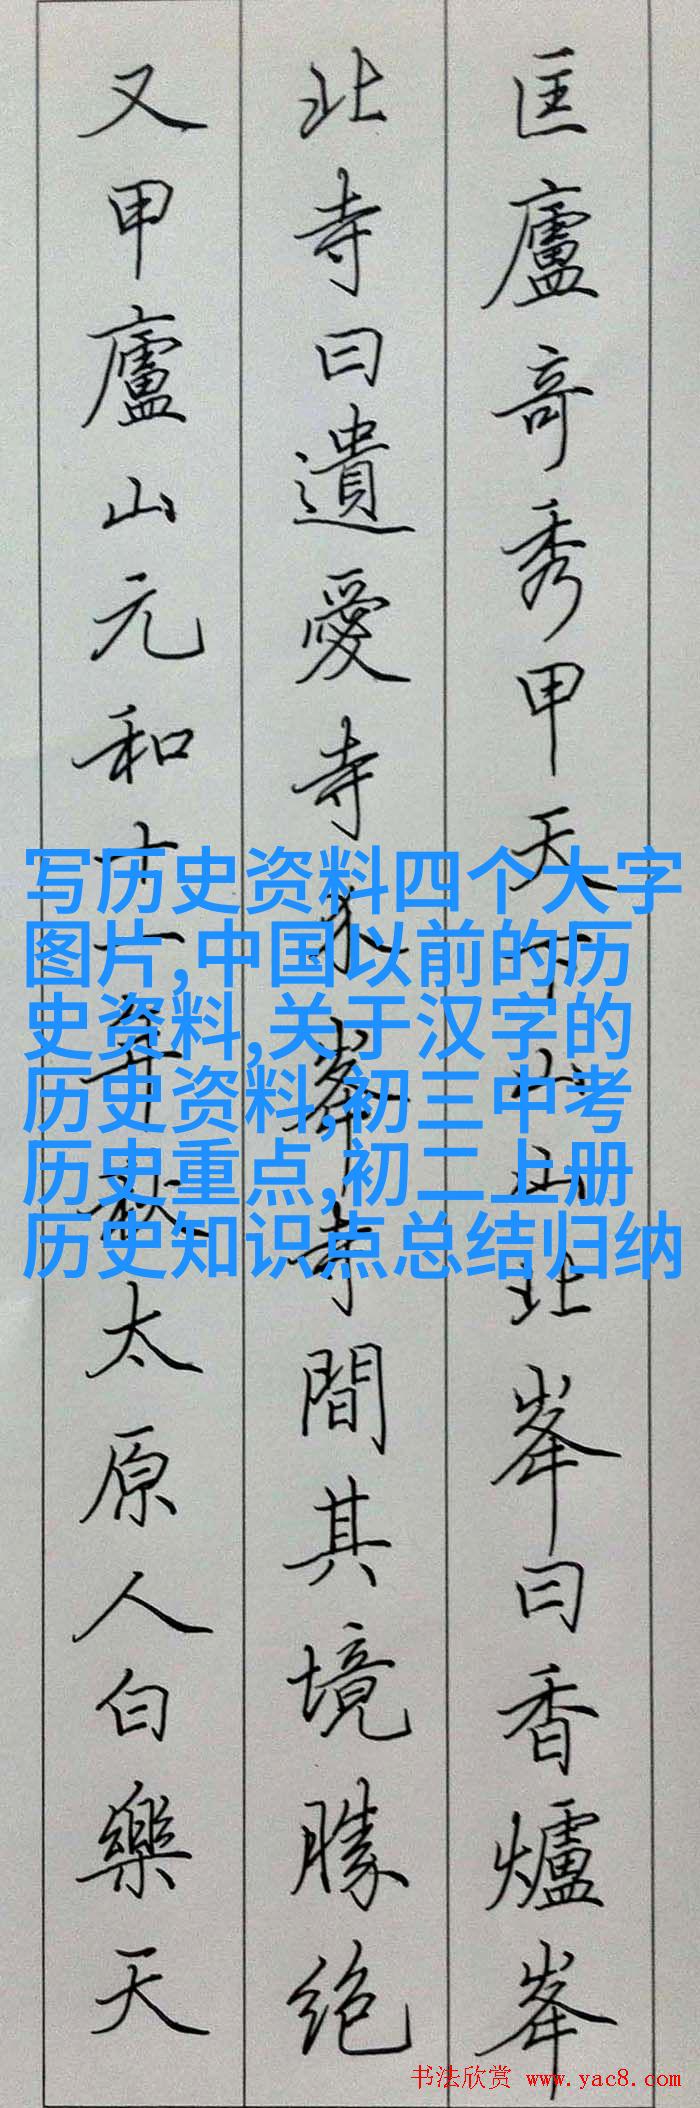 匡廬奇秀甲天下山山北峯曰香爐峯
北寺曰遺愛寺介峯寺間其境勝绝
又甲廬山元和十一年秋太原人白樂天
写历史资料四个大字
图片,中国以前的历
史资料,关于汉字的
历史资料,初三中考
历史重点,初二上册
历史知识点总结归纳
书法欣赏 www.yac8.com